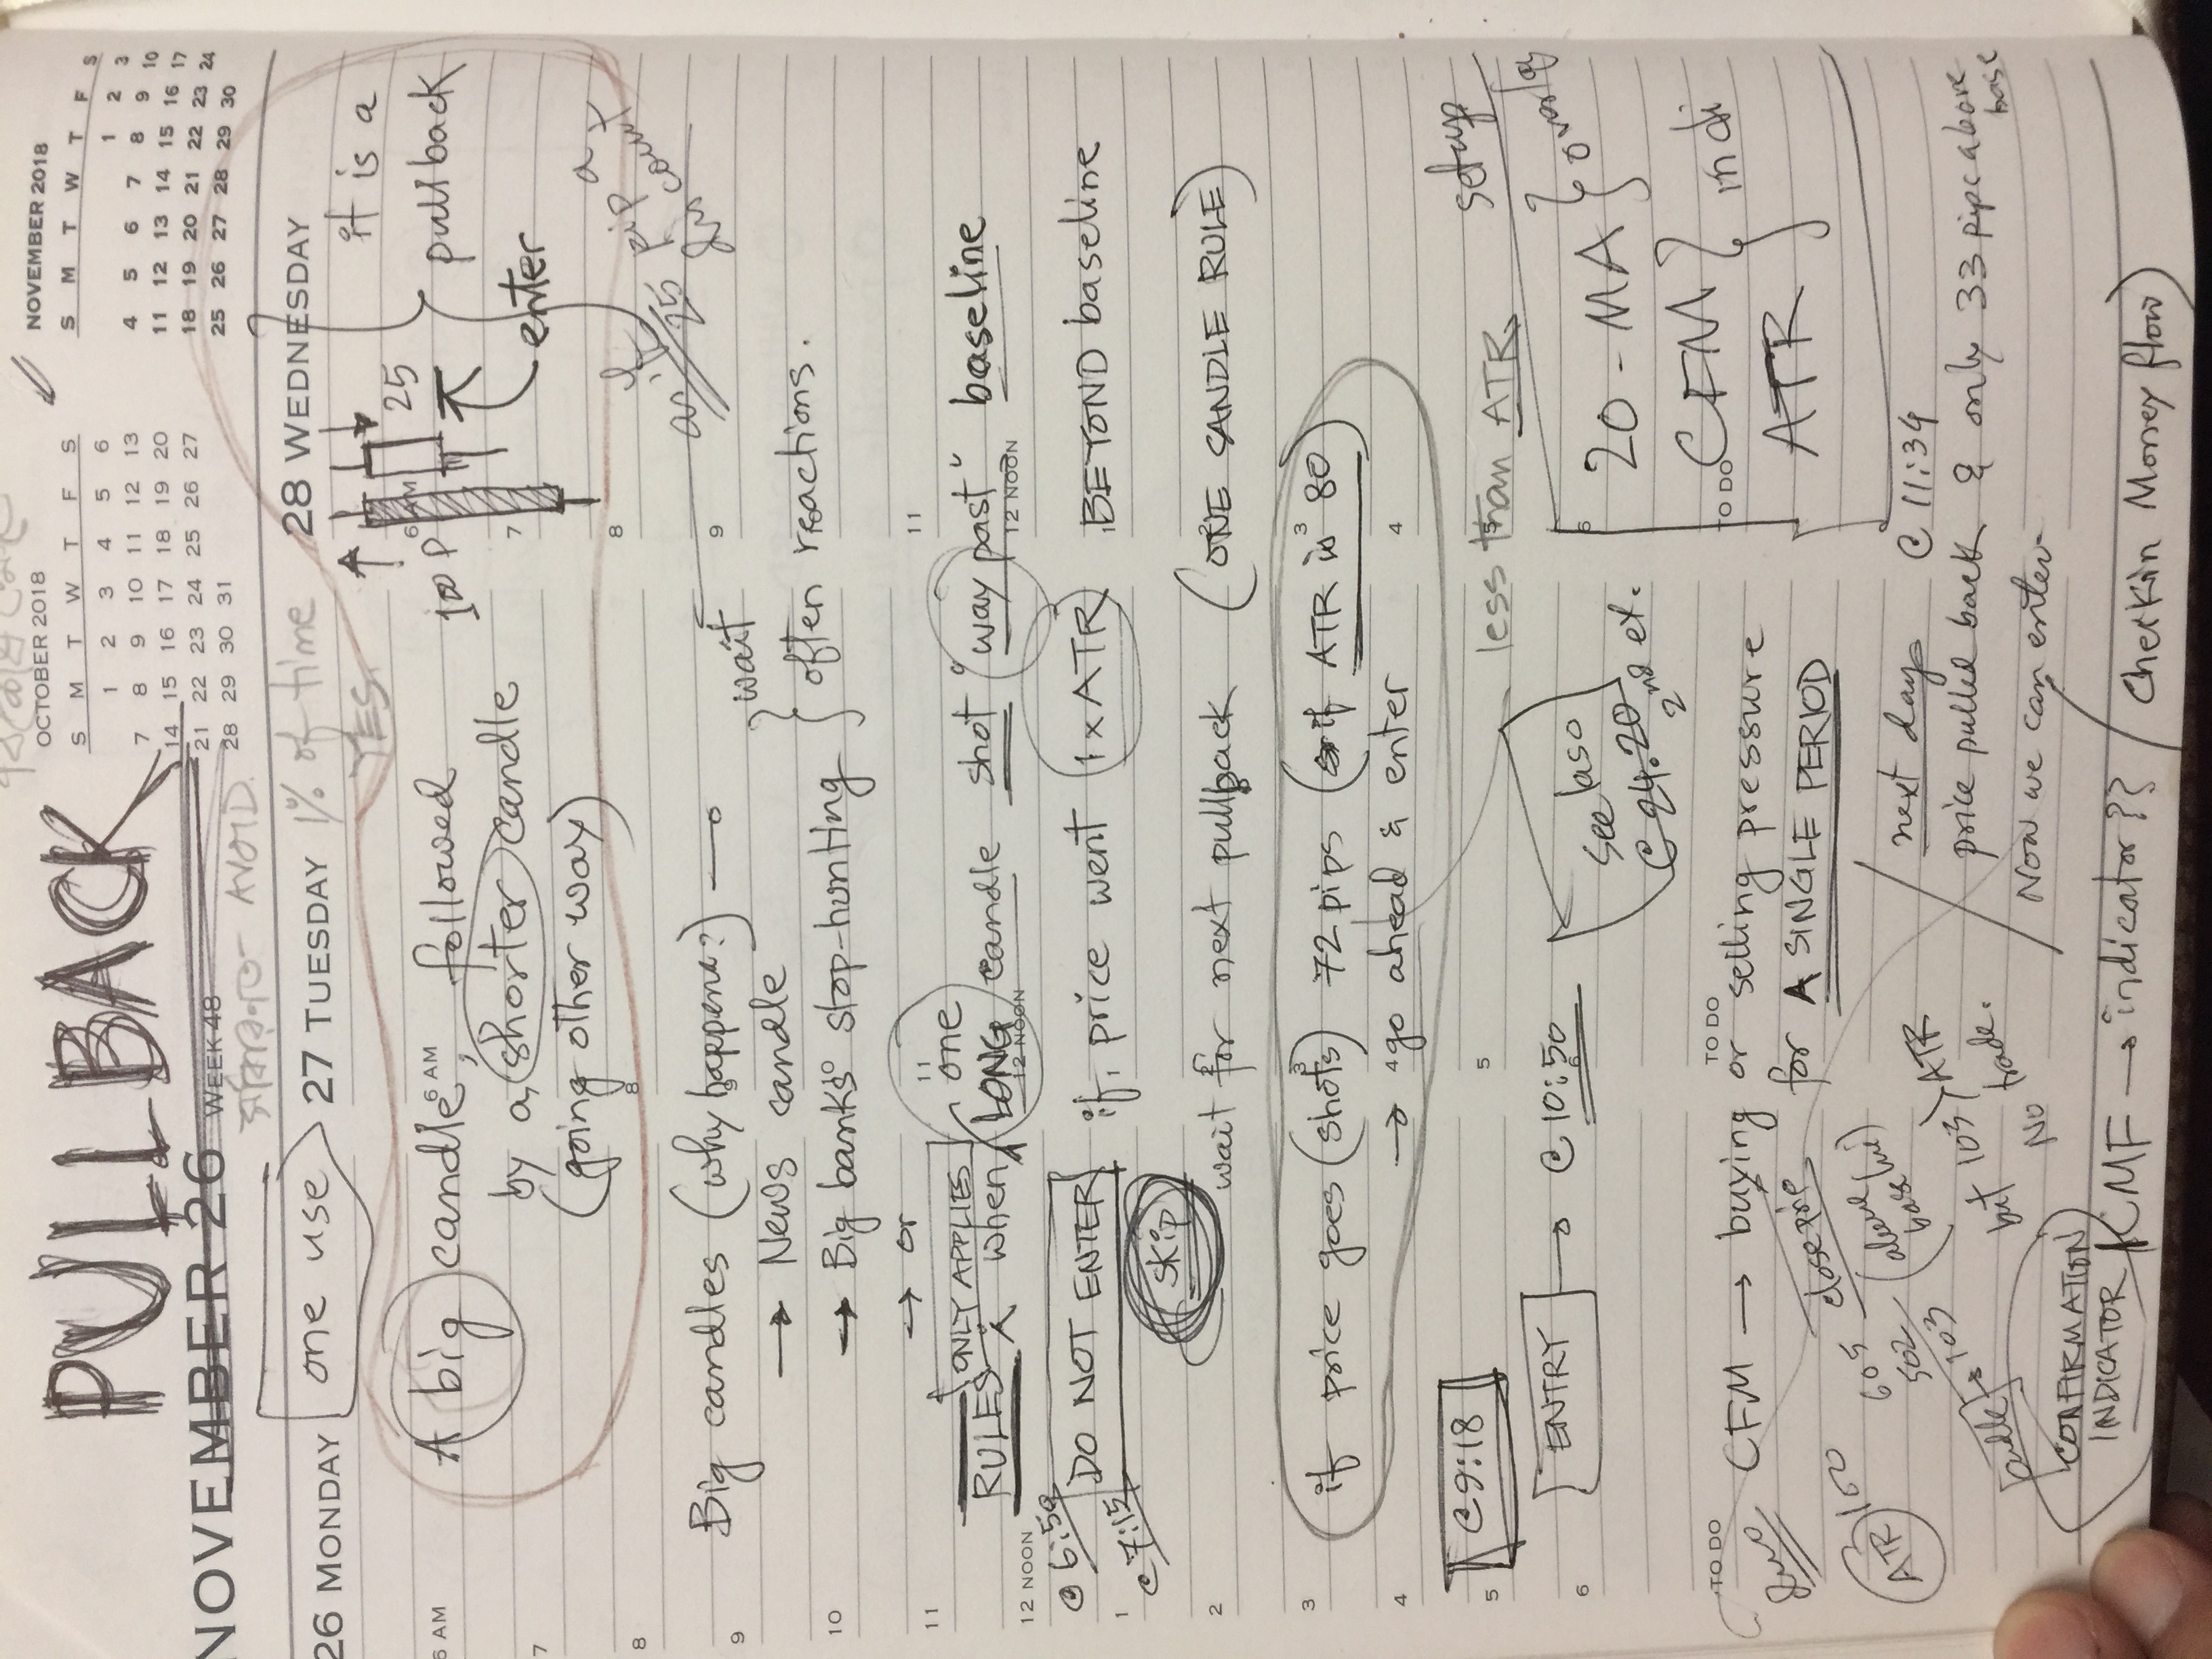 PULLBACK
OCTOBER 2018
S M T W T F S
1 2 3 4 5 6
7 8 9 10 11 12 13
14 15 16 17 18 19 20
21 22 23 24 25 26 27
28 29 30 31
NOVEMBER 2018
S M T W T F S
1 2 3
4 5 6 7 8 9 10
11 12 13 14 15 16 17
18 19 20 21 22 23 24
25 26 27 28 29 30
NOVEMBER 26 WEEK 48
AVOID.
26 MONDAY
one use
27 TUESDAY
1% of time
YES.
28 WEDNESDAY
A big candle, followed
by a shorter candle
(going other way)
100 P
25
enter
it is a
pullback
as if
25 pip a
discount
6 AM 6 AM 6 AM
7 7
8 8 8
Big candles (why happens?)
→ News candle
→ Big banks' stop-hunting
→ or
wait
often reactions.
9 9
10
11 11 11
RULES ONLY APPLIES when one LONG candle shot "way past" baseline
12 NOON 12 NOON 12 NOON
@ 6:50
@ 7:15
DO NOT ENTER if, price went 1 x ATR BEYOND baseline
1
skip
wait for next pullback (ONE SANDLE RULE)
2
if price goes (shots) 72 pips (if ATR is 80)
→ go ahead & enter
3 3 3
4 4 4
@ 9:18
5 5 5
less than ATR
ENTRY → @ 10:50
6 6 6
See laso
@ 24.20
2nd ex.
setup
20 - MA } overlay
CFM
ATR } indi
TO DO TO DO TO DO
CFM → buying or selling pressure
for A SINGLE PERIOD
ATR 100
605 close prie
502
103
(above
baseline)
but 103 > ATR
NO trade.
candle
next day @ 11:34
price pulled back & only 33 pips above
base
Now we can enter
CONFIRMATION
INDICATOR
CMF → indicator??
Cheikin Money flow)